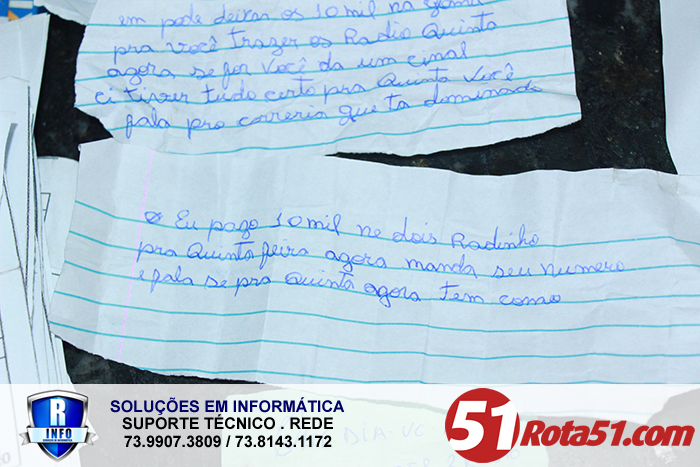 em pode deixar os 10 mil na
pra você trazer os Radio Quinta
agora se for você da um cinal
ci tiver tudo certo pra Quinta você
fala pro correria que ta dominado
Eu pago 10 mil ne dois Radinho
pra Quinta feira agora manda seu numero
e fala se pra Quinta agora tem como
DIA VC
R
INFO
SOLUÇÕES EM INFORMÁTICA
SUPORTE TÉCNICO . REDE
73.9907.3809 / 73.8143.1172
51 Rota51.com